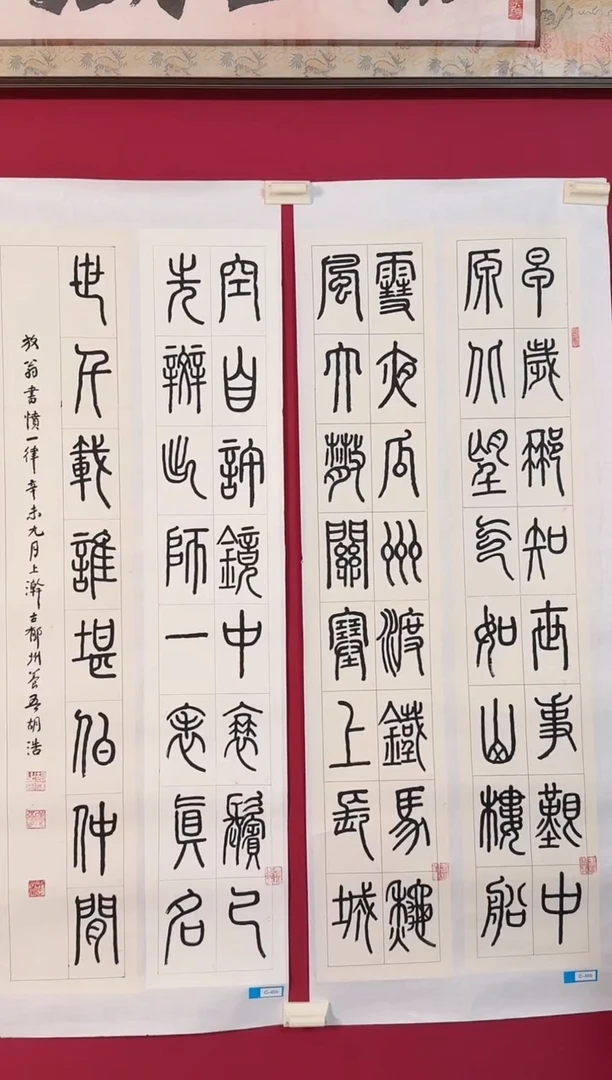 早歲那知世事艱中
原北望气如山樓船
雪夜瓜州渡鐵馬龝
風大散關塞上長城
空自許鏡中衰鬢已
先辬出師一表真名
世千載誰堪伯仲閒
放翁書憤一律辛未九月上澣古郁州吾胡浩